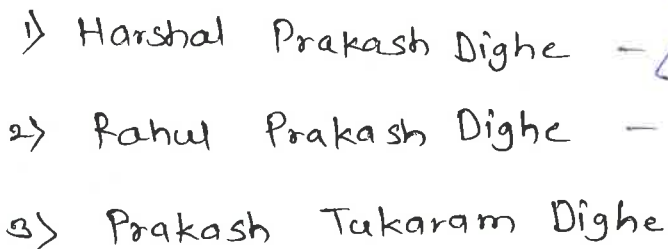 1) Harshal Prakash Dighe -
2) Rahul Prakash Dighe -
3) Prakash Tukaram Dighe